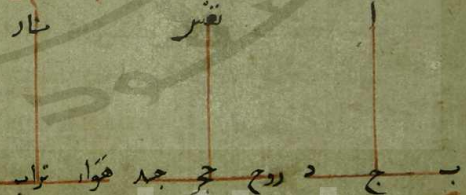 ا نفس نار
ب ج د روح حجر جسد هواء تراب